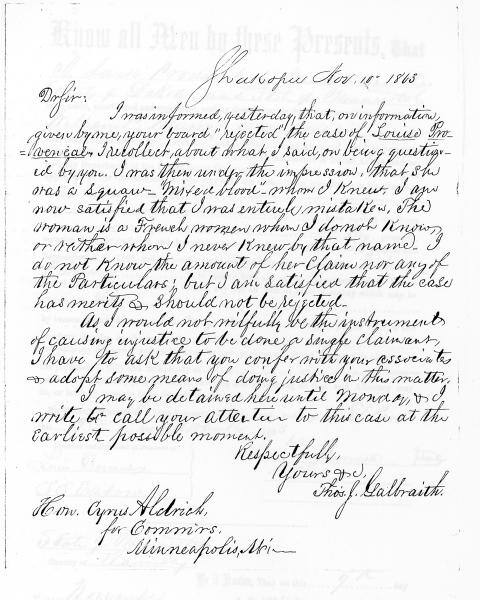 Know all Men by these Presents, That
Shakopee Nov. 10th 1863
Dr Sir:
I was informed, yesterday, that, on information,
given by me, your board "rejected" the case of Louise Pro-
=vencal. I recollect, about what, I said, on being question-
ed by you. I was then under the impression, that she
was a Squaw "mixed blood" whom I knew. I am
now satisfied that I was entirely mistaken. The
woman is a French women whom I do not know,
or rather whom I never knew by that name. I
do not know the amount of her Claim nor any of
the Particulars; but I am satisfied that the case
has merits & should not be rejected.
As I would not wilfully be the instrument
of causing injustice to be done a single claimant,
I have to ask that you confer with your associates
& adopt some means of doing justice in this matter.
I may be detained here until Monday, & I
write to call your attention to this case at the
Earliest possible moment.
Respectfully,
Yours &c,
Thos. J. Galbraith.
Hon. Cyrus Aldrich,
for Commirs.
Minneapolis, Min